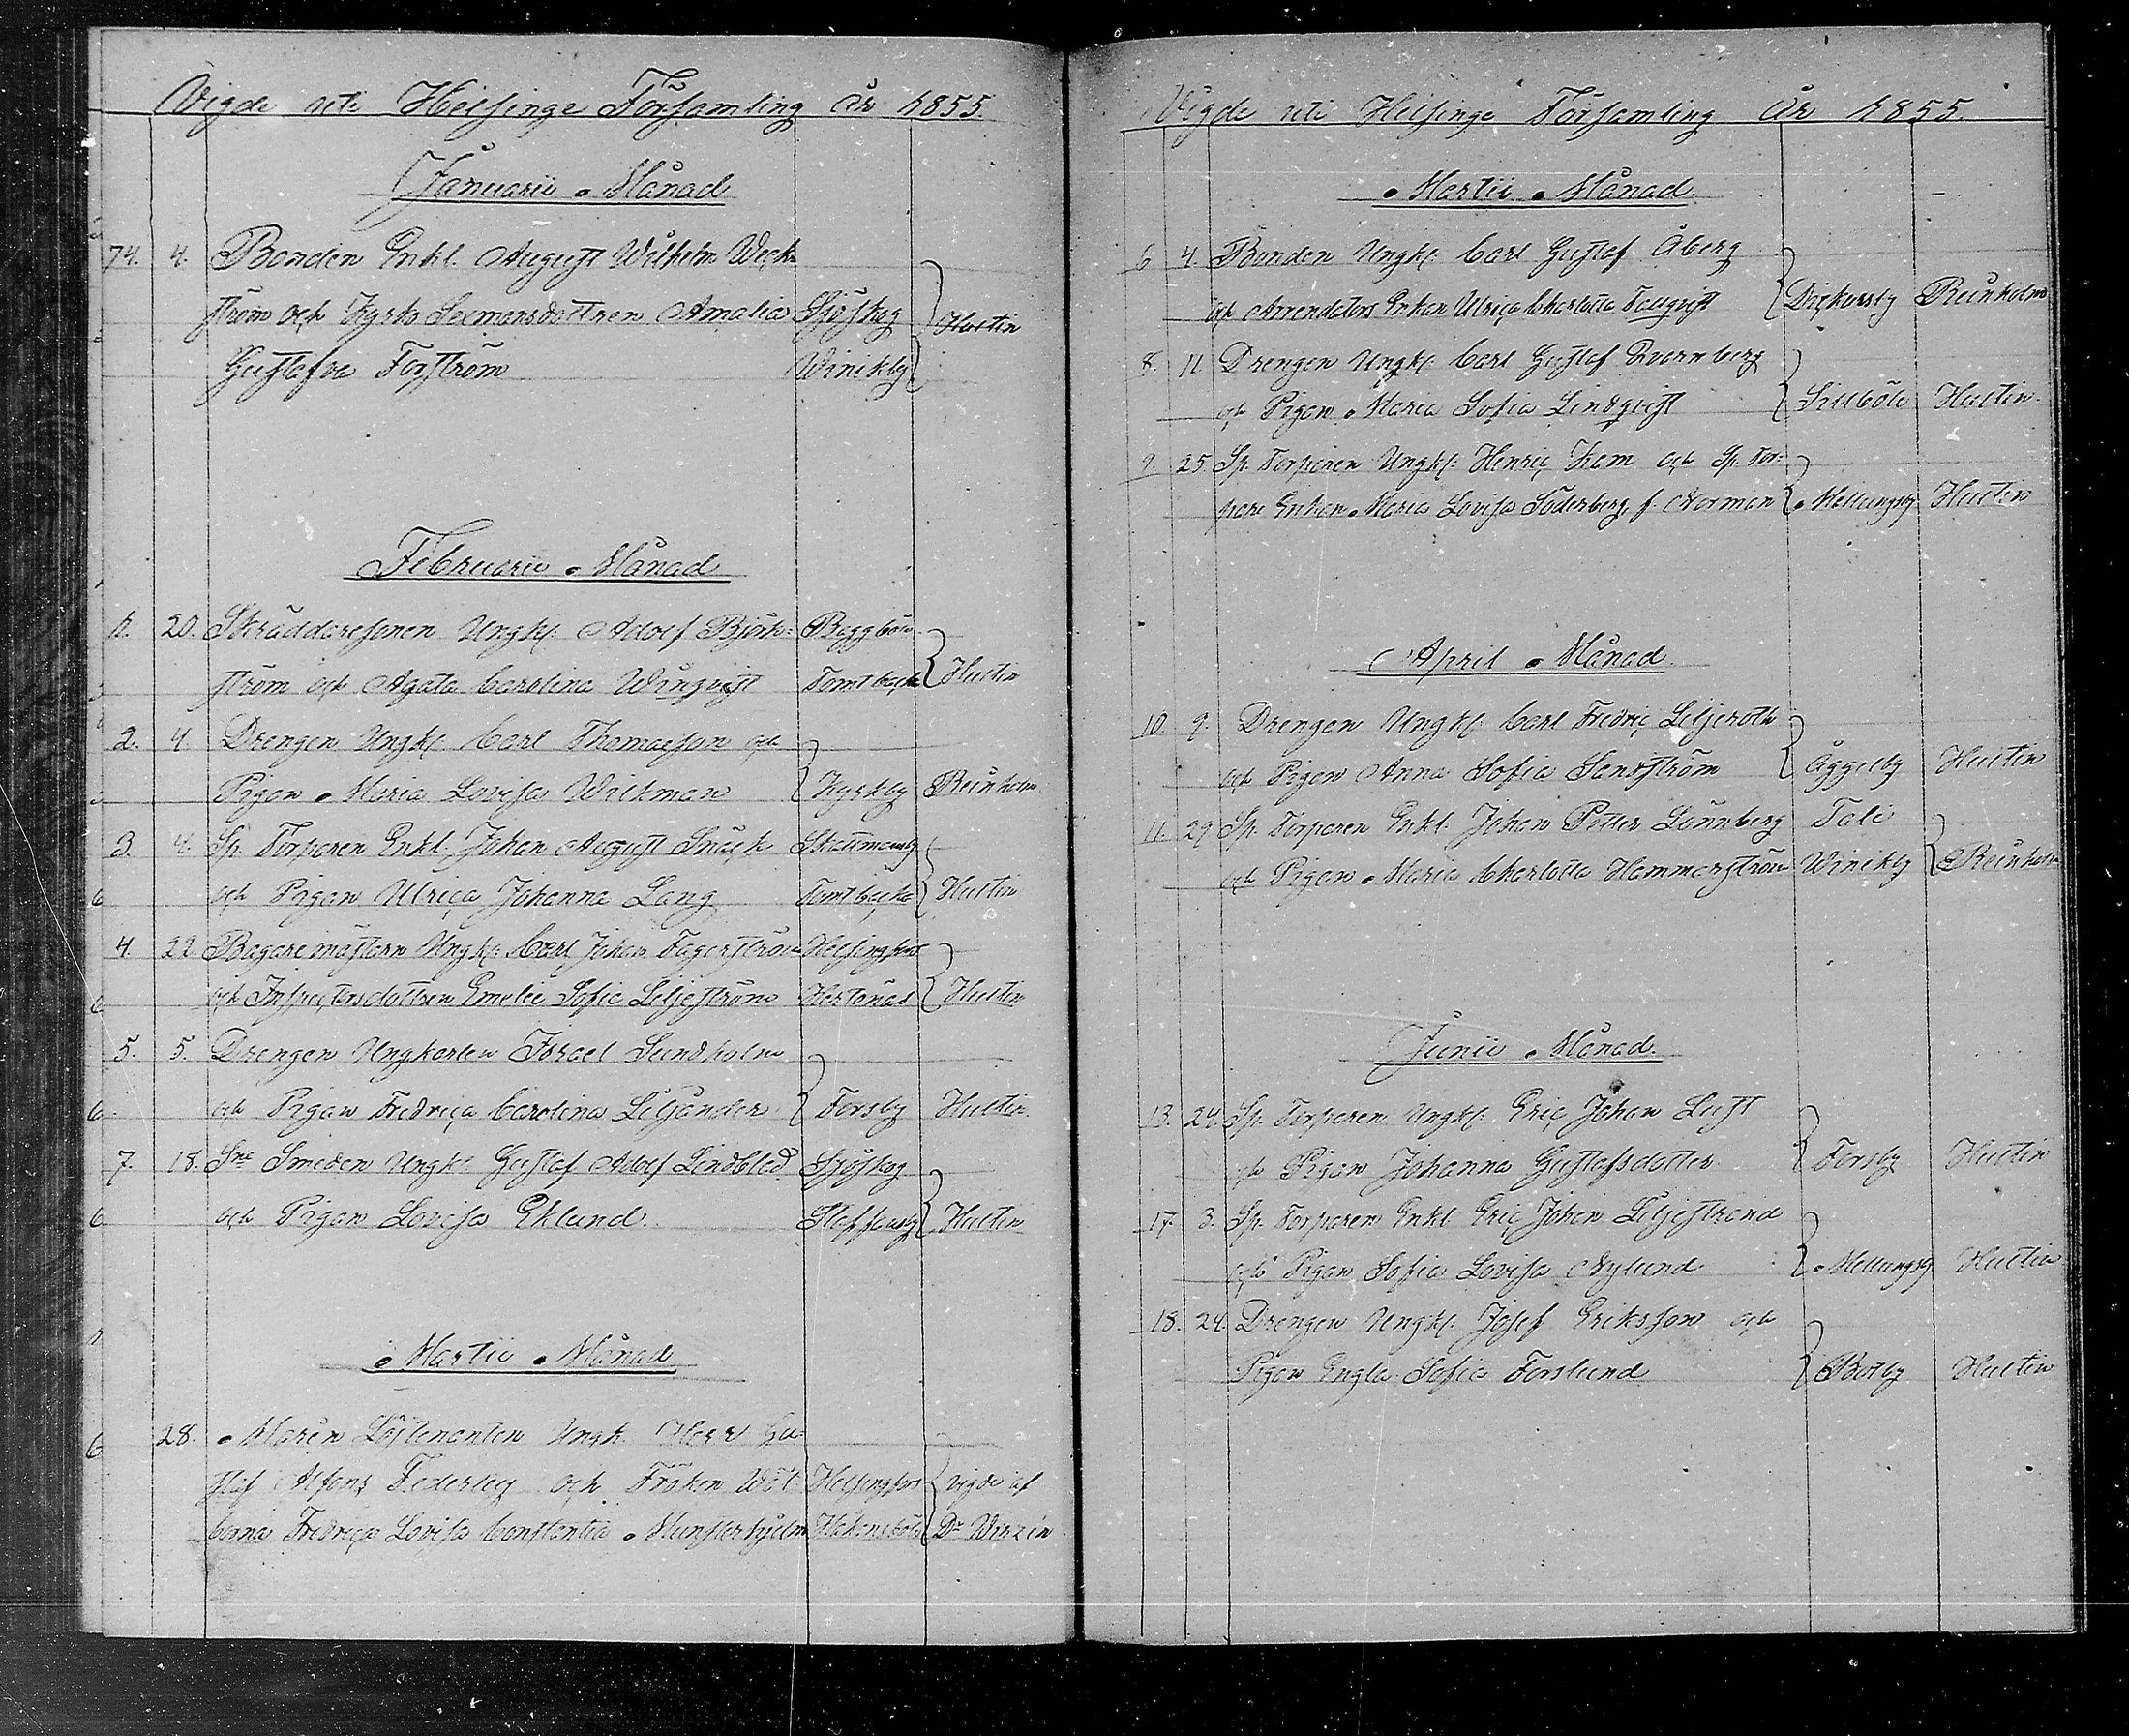 Vigde uti Helsinge Församling År 1855.
Januarii Månad
74. 4. Bonden Enkl. August Wilhelm Weck=
ström och Kyrko Sexmansdottren Amalia Sjöskog Hultin
Gustafva Forsström Winikby
Februarii Månad
1. 20. Skräddaresonen Ungk. Adolf Björk= Baggböle
ström och Agata Carolina Winqvist Tomtbacka Hultin
2. 4. Drengen Ungk. Carl Thomasson och
Pigan Maria Lovisa Wickman Kyrkby Reinholm
3. 4. Sp. Torparen Enkl. Johan August Snäck Skattmansby
och Pigan Ulrica Johanna Lang Tomtbacka Hultin
4. 22. Bagaremästarn Ungk. Carl Johan Fagerström Helsingfors
och Inspectorsdottren Emelie Sofia Liljeström Hertonäs Hultin
5. 5. Drengen Ungkarlen Israel Sundholm
och Pigan Fredrica Carolina Liljander Forsby Hultin
7. 18. Sne Smeden Ungk. Gustaf Adolf Lindblad Sjöskog
och Pigan Lovisa Eklund. Staffansby Hultin
Martii Månad
28. Marin Löjtenanten Ungk. Herr Gu=
staf Alfons Federley och Fröken Wil= Helsingfors vigde af
Fredrica Lovisa Constantia Munsterhjelm Håkansböle Dr Wirzén
Vigde uti Helsinge Församling År 1855.
Martii Månad
6 4. Bonden Ungk. Carl Gustaf Åberg
och Arrendators Enkan Ulrica Charlotta Tallqvist Dickursby Reinholm
8. 11. Drengen Ungk. Carl Gustaf Qvarnberg
och Pigan Maria Sofia Lindqvist Sillböle Hultin
9. 25. Sp. Torparen Ungk. Henric Kam och Sp. Tor=
pare Enkan Maria Lovisa Söderberg, f. Norman Mellungsby Hultin
April Månad
10. 9. Drengen Ungk. Carl Fredric Liljeroth
och Pigan Anna Sofia Sandström Åggelby Hultin
11. 29. Sp. Torparen Enkl. Johan Petter Lönnberg Tali
och Pigan Maria Charlotta Hammarström Winikby Reinholm
Junii Månad
13. 24. Sp. Torparen Ungk. Eric Johan Lust
och Pigan Johanna Gustafsdotter Forsby Hultin
17. 3. Sp. Torparen Enkl. Eric Johan Liljestrand
och Pigan Sofia Lovisa Nylund Mellungsby Hultin
18. 24. Drengen Ungk. Josef Eriksson och
Pigan Engla Sofia Forslund Botby Hultin